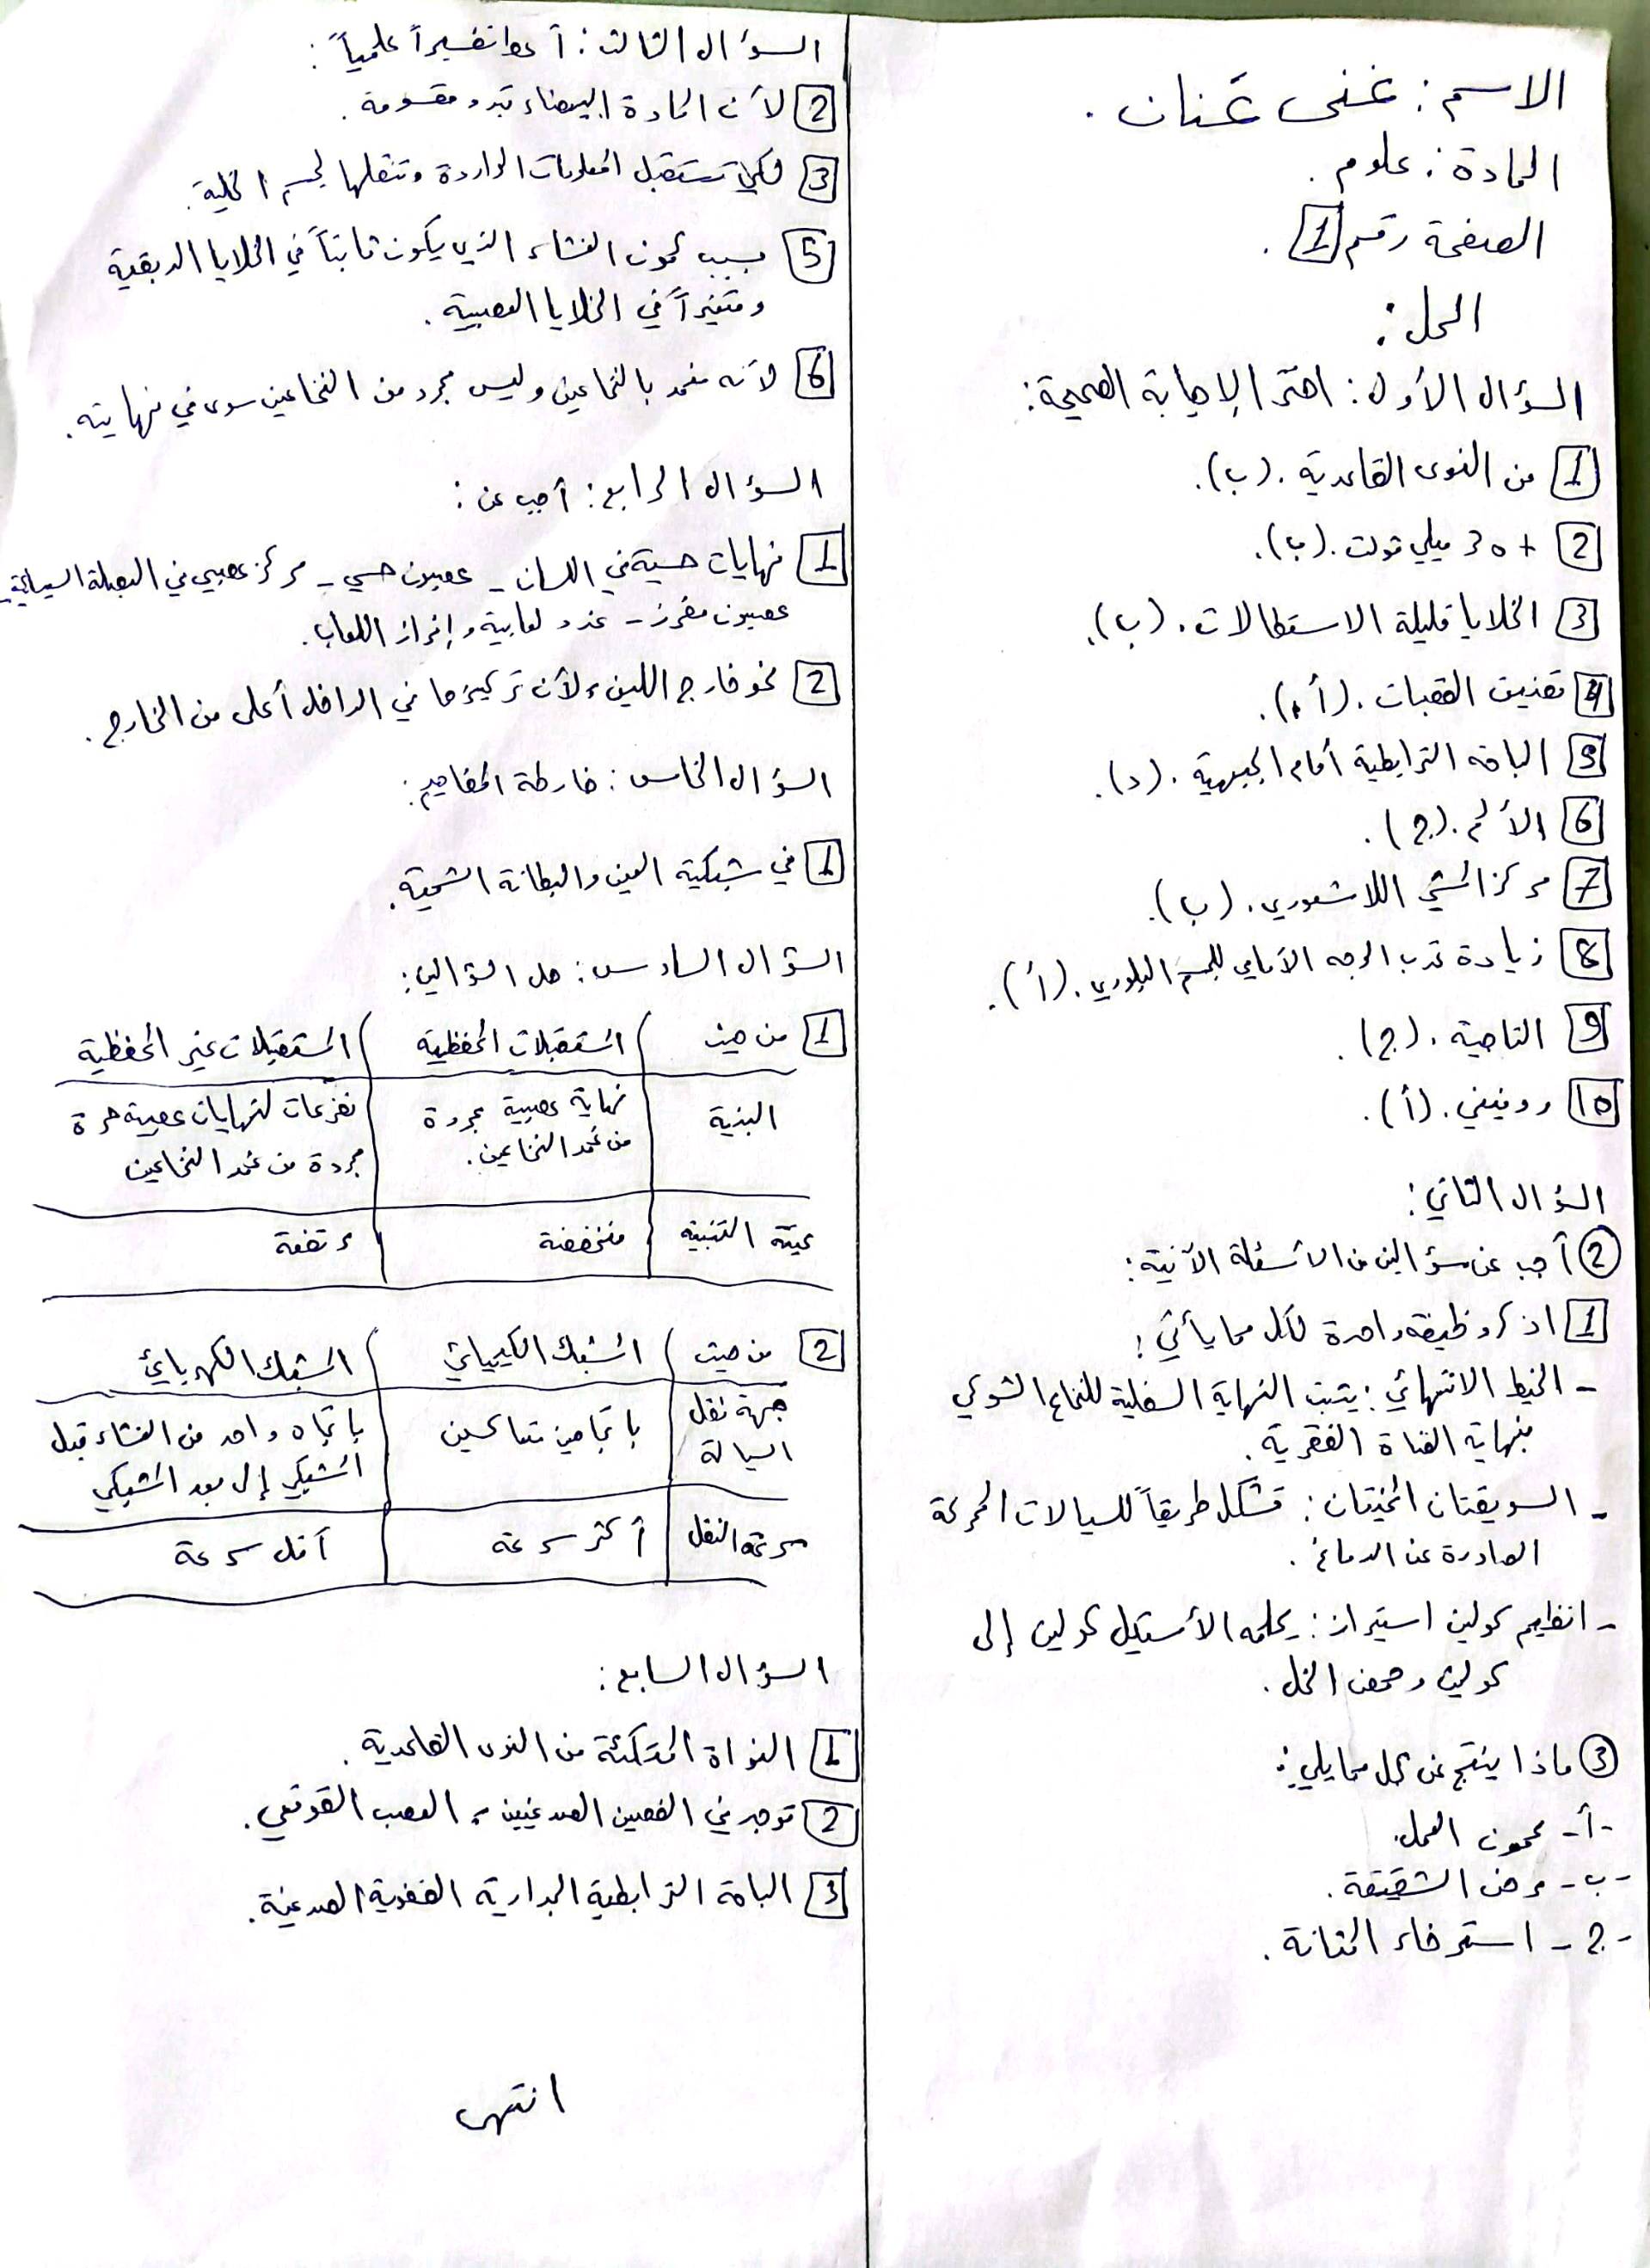 الاسم : غنى عنان .
المادة : علوم .
الصفحة رقم 1 .
الحل :
السؤال الأول : اختر الإجابة الصحيحة :
1 من النوى القاعدية . (ب) .
2 +30 ميلي فولت . (ب) .
3 الخلايا قليلة الاستطالات . (ب) .
4 تضيق القصبات . (أ) .
5 الباقة الترابطية أمام الجبهية . (د) .
6 الألم . (ج) .
7 مركز المشي اللاشعوري . (ب) .
8 زيادة تحدب الوجه الأمامي للجسم البلوري . (أ) .
9 التاجية . (ج) .
10 روفيني . (أ) .
السؤال الثاني :
2 أجب عن سؤالين من الأسئلة الآتية :
1 اذكر وظيفة واحدة لكل مما يأتي :
- الخيط الانتهائي : يثبت النهاية السفلية للنخاع الشوكي
بنهاية القناة الفقرية .
- السويقتان المخيتان : تشكل طريقاً للسيالات المحركة
الصادرة عن الدماغ .
- انظيم كولين استيراز : يحلمه الأستيل كولين إلى
كولين وحمض الخل .
3 ماذا ينتج عن كل مما يلي :
- أ - كمون العمل .
- ب - مرض الشقيقة .
- ج - استرخاء المثانة .
السؤال الثالث : أعط تفسيراً علمياً :
2 لأن المادة البيضاء تبدو مقسومة .
3 لكي تستقبل المعلومات الواردة وتنقلها لجسم الخلية .
5 بسبب كمون الغشاء الذي يكون ثابتاً في الخلايا الدبقية
ومتغيراً في الخلايا العصبية .
6 لأنه مغمد بالنخاعين وليس مجرد من النخاعين سوى في نهايته .
السؤال الرابع : أجب عن :
1 نهايات حسية في اللسان - عصبون حسي - مركز عصبي في البصلة السيسائية -
عصبون مفرز - غدد لعابية وإفراز اللعاب .
2 نحو خارج الليف ، لأن تركيزها في الداخل أعلى من الخارج .
السؤال الخامس : خارطة المفاهيم :
1 في شبكية العين والبطانة الشمية .
السؤال السادس : حل السؤالين :
1 من حيث | المستقبلات المحفظية | المستقبلات غير المحفظية
البنية | نهاية عصبية مجردة | تفرعات لنهايات عصبية حرة
من غمد النخاعين . | مجردة من غمد النخاعين
عتبة التنبيه | منخفضة | مرتفعة
2 من حيث | المشبك الكيميائي | المشبك الكهربائي
جهة نقل | باتجاهين متعاكسين | باتجاه واحد من الغشاء قبل
السيالة | المشبكي إلى بعد المشبكي
سرعة النقل | أكثر سرعة | أقل سرعة
السؤال السابع :
1 النواة المتكئة من النوى القاعدية .
2 توجد في الفصين الصدغيين ، العصب القوقعي .
3 الباقة الترابطية الجدارية القفوية الصدغية .
انتهى